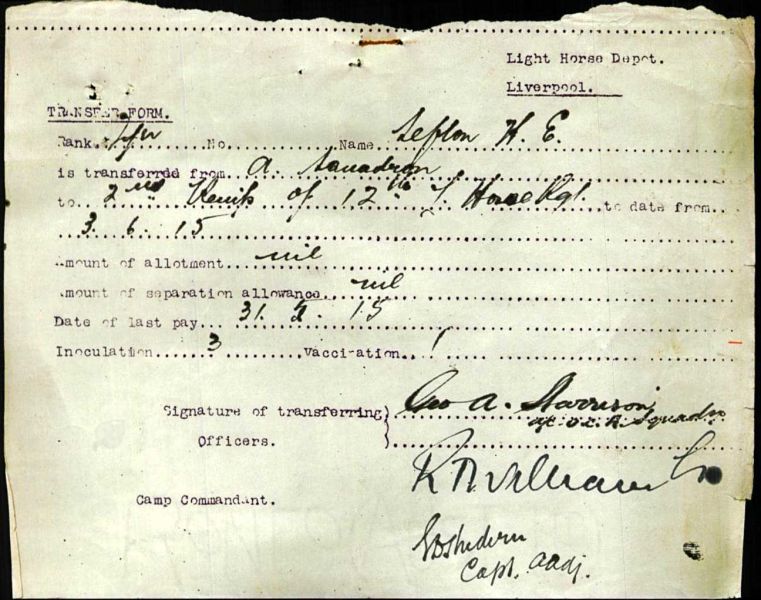 Light Horse Depot.
Liverpool.
TRANSFER FORM.
Rank Tpr No. Name Sefton H. E.
is transferred from A. Squadron
to 2nd Reinfs of 12th L Horse Rgt. to date from
3. 6. 15
Amount of allotment nil
Amount of separation allowance nil
Date of last pay 31. 5. 15
Inoculation 3 Vaccination 1
Signature of transferring } Geo A. Harrison
O.C. A. Squadn
Officers.
Camp Commandant.
Capt. aadj.